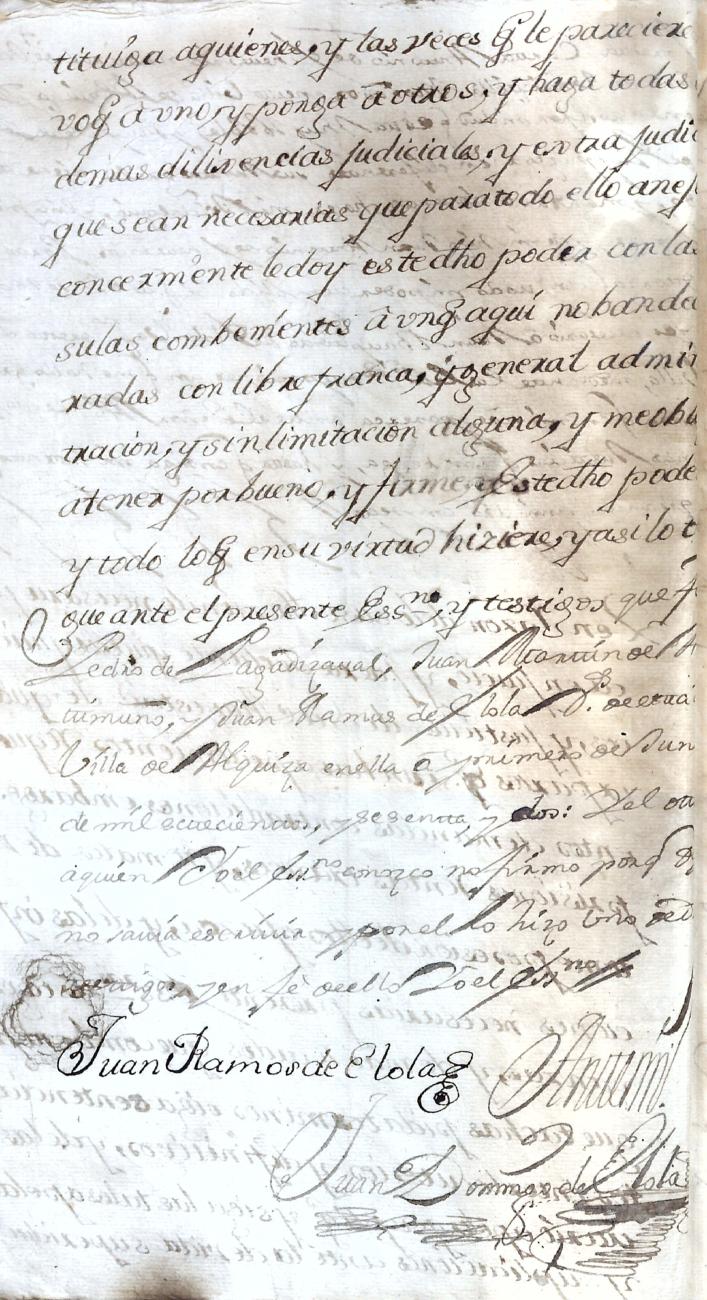 tituiga aquienes, y las veces q̃ le pareciere
voq̃ à vno, y ponga à otros, y haga todas
demas dilixencias judiciales, y extra judic
que sean necesarias que para todo ello anej
concerm̃ente le doy este dho poder con las
sulas combenientes à vnq̃ aquí no banda
radas con libre franca, y general admin
tracion, y sin limitacion alguna, y me obli
à tener por bueno, y firme este dho pode
y todo loq̃ en su virtud hiziere, y asi lo t
que ante el presente Essno, y testigos que f
Pedro de Lagadizaval, Juan Martin de
Juan Ramos de Elola de esta
Villa de Alquiza en ella à primero de Jun
de mil setecientos, y sesenta, y dos: Y el ot
aquien Yo el Essno conozco no firmo porq̃
no savia escrivir y por el lo hizo Uno de
testigos, y en fe de ello Yo el Ess
Juan Ramos de Elola
Ante mi
Juan Domingo de Elola